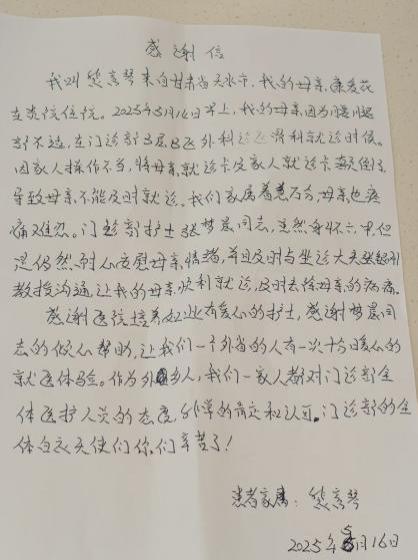 感谢信
我叫熊亲琴来自甘肃省天水市，我的母亲康爱花
在贵院住院。2025年5月16日早上，我的母亲因为腰腿
部不适，在门诊部3层B区外科诊区骨科就诊时候。
因家人操作不当，将母亲就诊卡及家人就诊卡弄倒了，
导致母亲不能及时就诊。我们家属着急万分，母亲也疼
痛难忍。门诊部护士张梦晨同志，虽然身怀六甲，但
是仍然耐心安慰母亲情绪，并且及时与坐诊大夫
教授沟通，让我的母亲顺利就诊，及时去除母亲的病痛。
感谢医院培养如此有爱心的护士，感谢梦晨同
志的倾心帮助，让我们一个外省的人有一次十分暖心的
就医体验。作为外乡人，我们一家人都对门诊部全
体医护人员的态度，非常的肯定和认可。门诊部的全
体白衣天使们你们辛苦了！
患者家属：熊亲琴
2025年5月16日